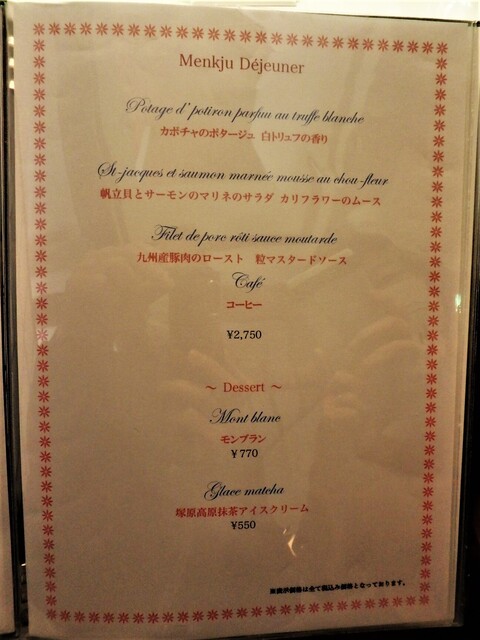 Menkju Déjeuner
Potage d' potiron parfuu au truffe blanche
カボチャのポタージュ 白トリュフの香り
St-jacques et saumon marnée mousse au chou-fleur
帆立貝とサーモンのマリネのサラダ カリフラワーのムース
Filet de porc rôti sauce moutarde
九州産豚肉のロースト 粒マスタードソース
Café
コーヒー
¥2,750
～ Dessert ～
Mont blanc
モンブラン
￥770
Glace matcha
塚原高原抹茶アイスクリーム
¥550
は全て税込み価格となっております。